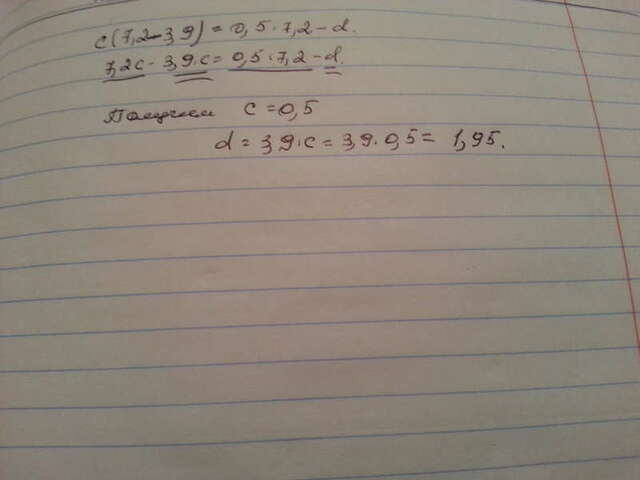 c(7,2-3,9)=0,5·7,2-d.
7,2c-3,9·c=0,5·7,2-d.
Получим c=0,5
d=3,9·c=3,9·0,5=1,95.